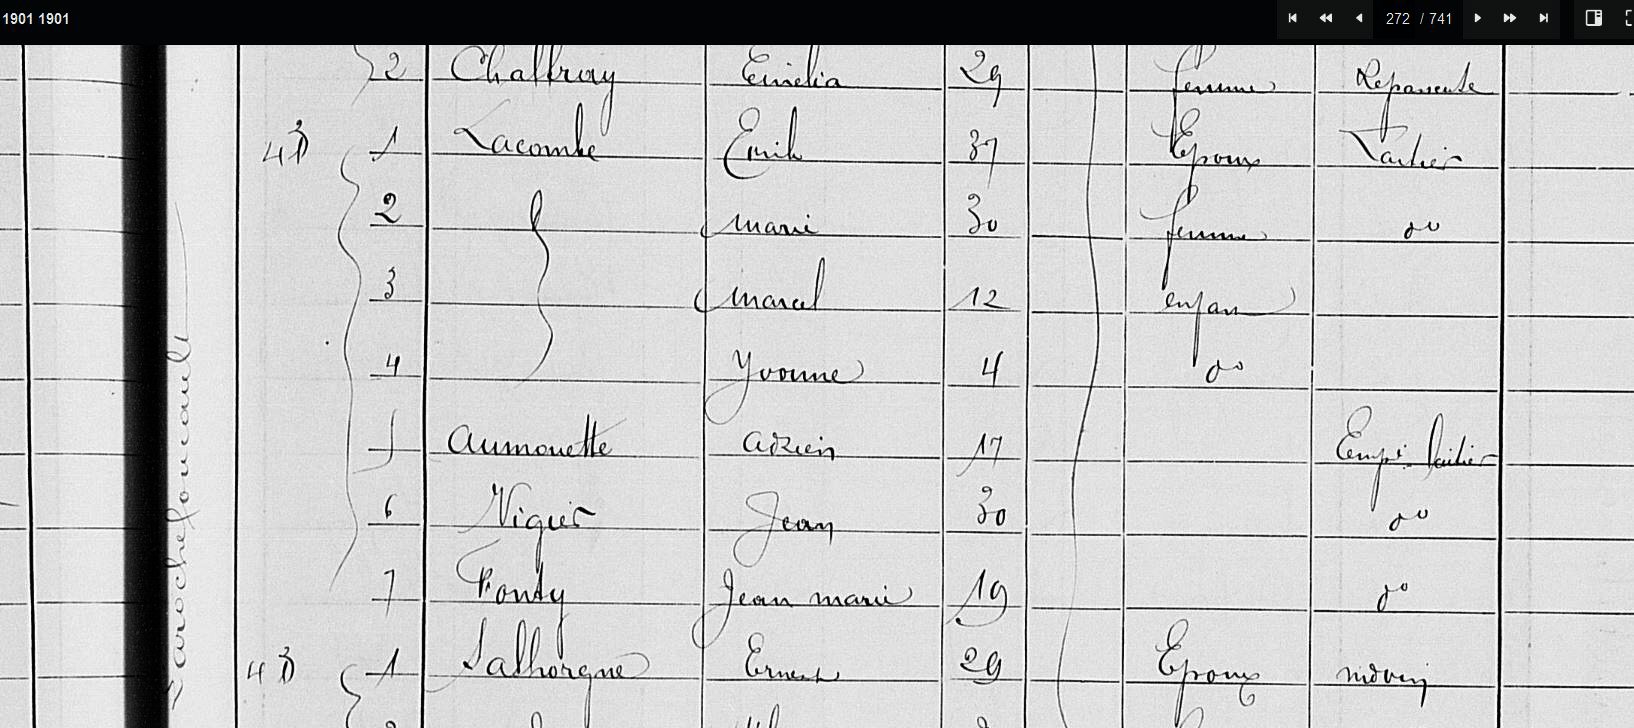 1901 1901
272 / 741
2 Chaffray Emélia 29 femme Repasseuse
1 Lacombe Emile 37 Epoux Laitier
2 Marie 30 femme do
3 Marcel 12 enfant
4 Yvonne 4 do
5 Aumouette Adrien 17 Empé. laitier
6 Vigier Jean 30 do
7 Fonty Jean Marie 19 do
1 Ernest 29 Epoux
Larochefoucault